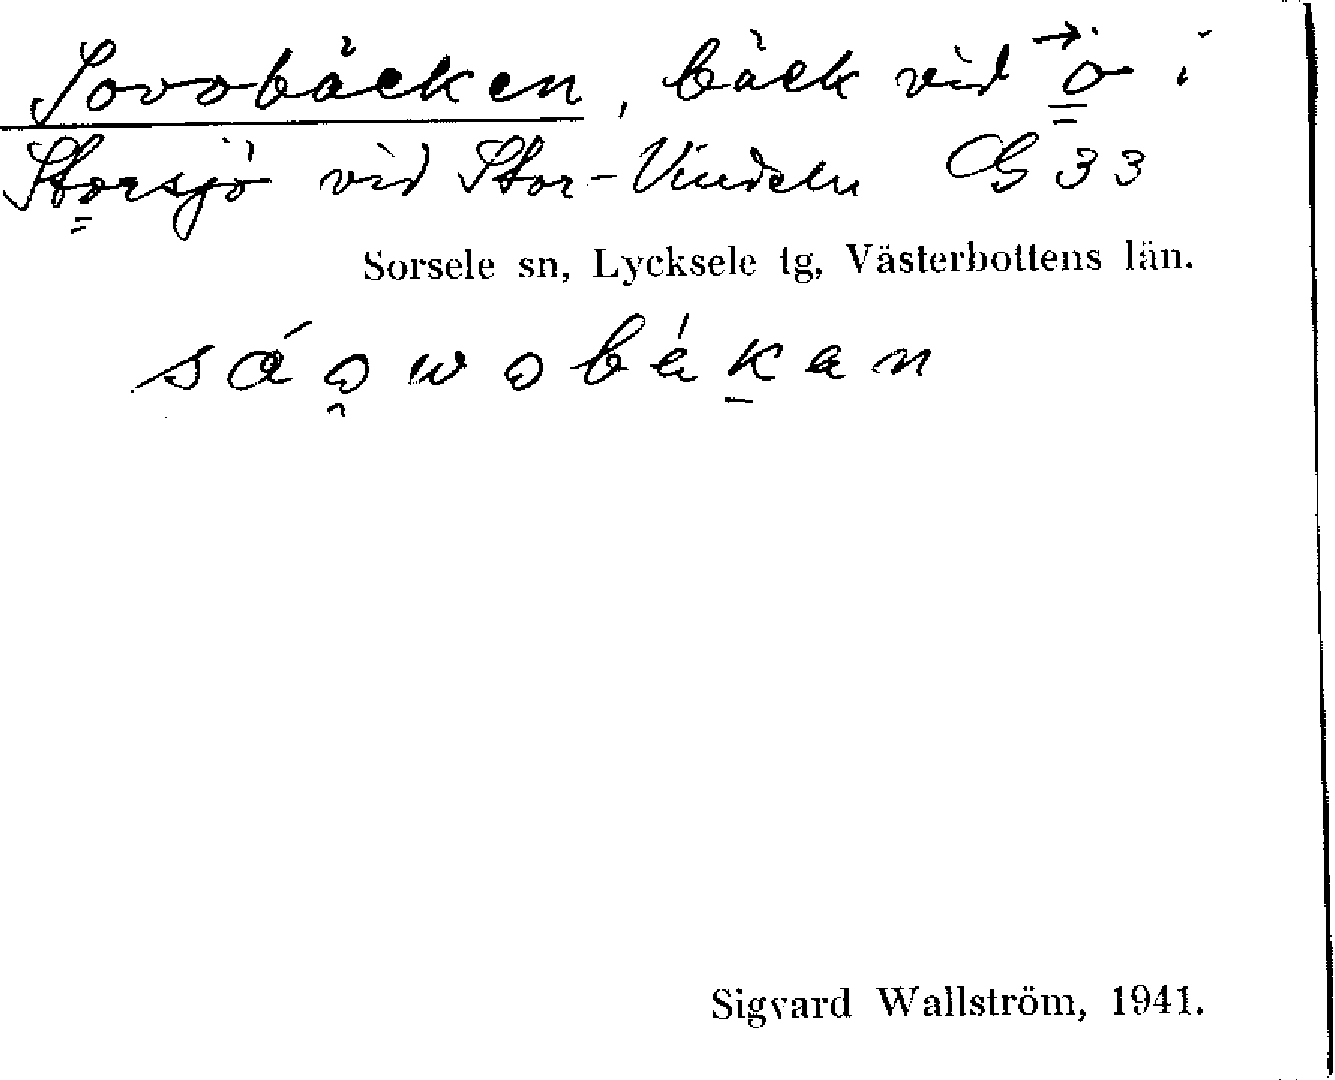 Sovobäcken, bäck vid → ö i
Storsjö vid Stor-Vindeln G 33
Sorsele sn, Lycksele tg, Västerbottens län.
sáo̯wobék̠an
Sigvard Wallström, 1941.